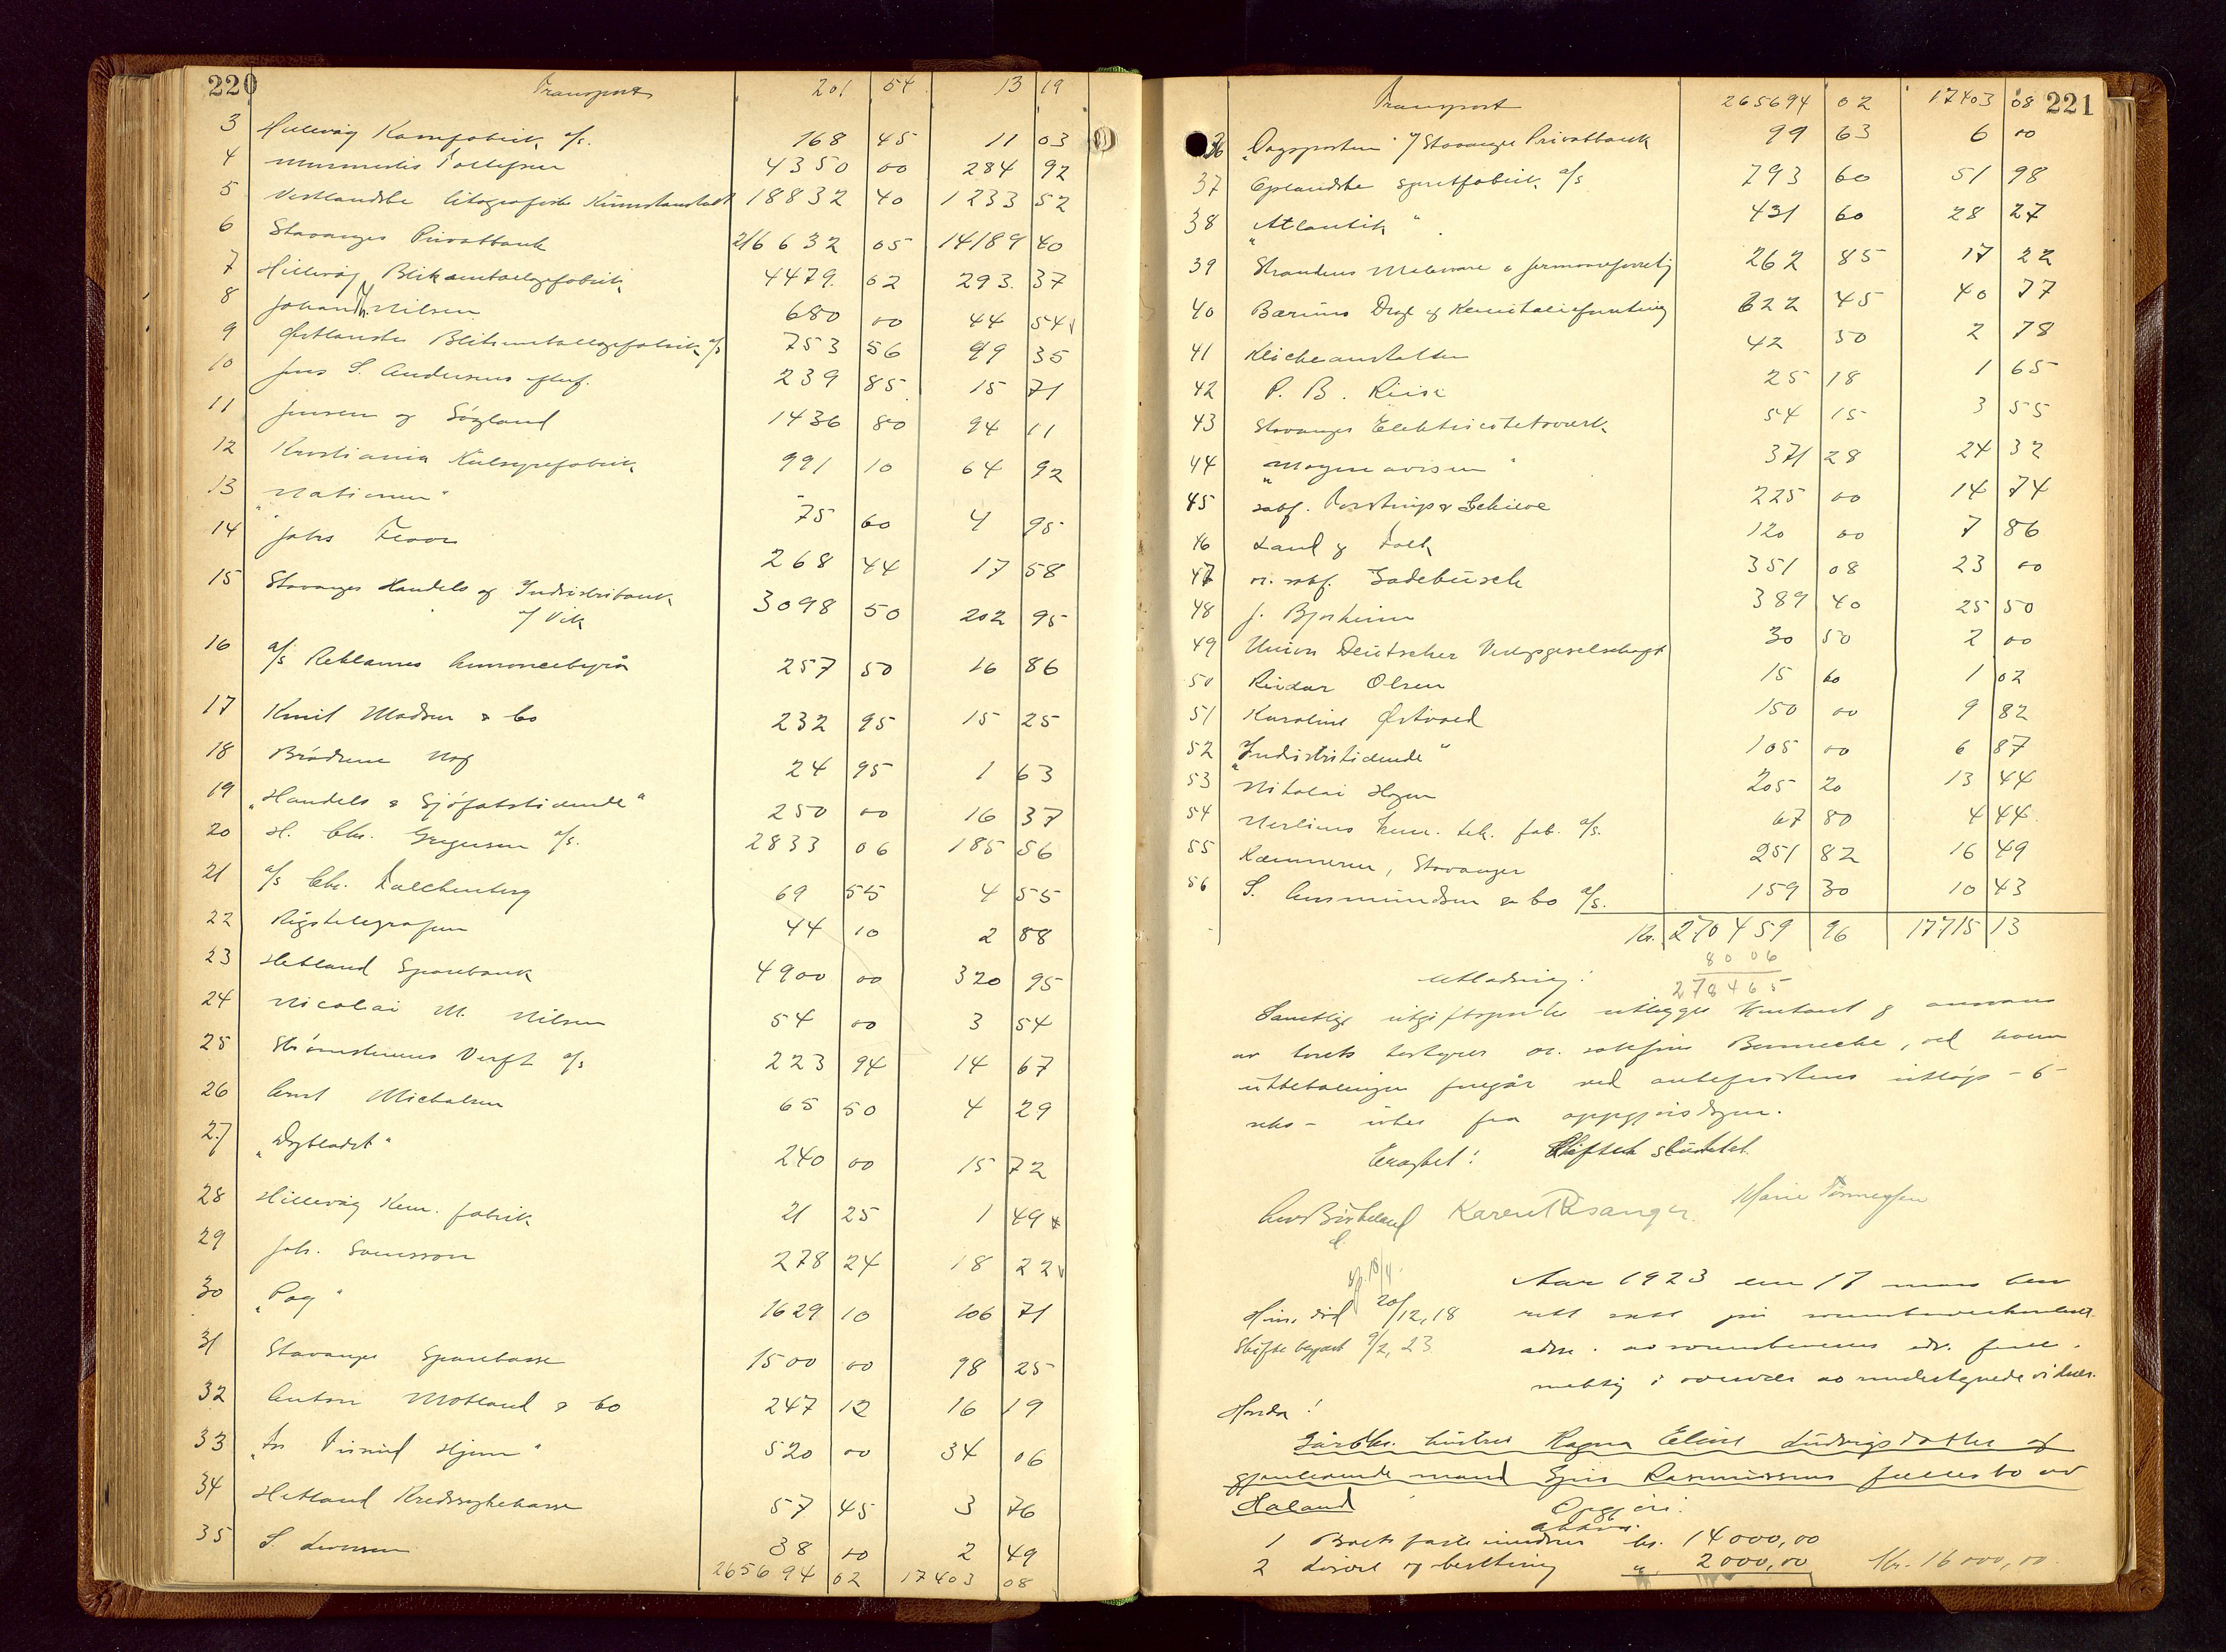 220
Transport 201 54 13 19
3 Hillevåg Kamfabrik a/s. 168 45 11 03
4 Murmester Tollefsen 4350 00 284 92
5 Vestlandske litografiske Kunstanstalt 18832 40 1233 52
6 Stavanger Privatbank 216632 05 14189 40
7 Hillevåg Blikemballagefabrik 4479 02 293 37
8 Johan H. Nilsen 680 00 44 54
9 Østlandske Blikemballagefabrik a/s 753 56 49 35
10 Jens S. Andersens efterf. 239 85 15 71
11 Jensen og Søgland 1436 80 94 11
12 Kristiania Kulsyrefabrik 991 10 64 92
13 "Nationen" 75 60 4 95
14 Johs Floor 268 44 17 58
15 Stavanger Handels og Industribank
f/ Vik 3098 50 202 95
16 a/s Reklames Annoncebyrå 257 50 16 86
17 Emil Madsen & Co 232 95 15 25
18 Brødrene 24 95 1 63
19 "Handels & Sjøfartstidende" 250 00 16 37
20 H. Chr. Gregersen a/s. 2833 06 185 56
21 a/s Chr. Falchenberg 69 55 4 55
22 Rigstelegrafen 44 10 2 88
23 Hetland Sparebank 4900 00 320 95
24 Nicolai M. Nilsen 54 00 3 54
25 Strømstenens Verft a/s 223 94 14 67
26 Michalsen 65 50 4 29
27 "Dagbladet" 240 00 15 72
28 Hillevåg Kem. fabrik 21 25 1 49
29 Joh. Svensson 278 24 18 22
30 "Pag" 1629 10 106 71
31 Stavanger Sparekasse 1500 00 98 25
32 Anton Motland & Co 247 12 16 19
33 Hjem" 520 00 34 06
34 Hetland Kredssykekasse 57 45 3 76
35 S. 38 00 2 49
265694 02 17403 08
221
Transport 265694 02 17403 08
36 "Dagsposten" f/ Stavanger Privatbank 99 63 6 00
37 Oplandske spritfabrik a/s 793 60 51 98
38 "Atlantik" 431 60 28 27
39 Strandens Malervare & farveforretn. 262 85 17 22
40 Bærums Drog og Kemikalieforretning 622 45 40 77
41 Klicheanstalten 42 50 2 78
42 P. B. Riise 25 18 1 65
43 Stavanger Elektricitetsverk 54 15 3 55
44 "Morgenavisen" 371 28 24 32
45 sakf. & Schiøve 225 00 14 74
46 Land og Folk 120 00 7 86
47 o.r. sakf. Gadebusch 351 08 23 00
48 J. Bjorheim 389 40 25 50
49 Union Deutscher Verlagsgesellschaft 30 50 2 00
50 Reidar Olsen 15 60 1 02
51 Karoline Østvold 150 00 9 82
52 "Industritidende" 105 00 6 87
53 Nikolai Hogen 205 20 13 44
54 Merlins kem. tek. fab. a/s. 67 80 4 44
55 Kæmneren, Stavanger 251 82 16 49
56 S. Aasmundsen & Co a/s. 159 30 10 43
Kr. 270459 96 17715 13
8006
278465
Utlodning:
Samtlige utgiftsposter utlægges kontant og anvises
av boets bestyrer o.r. sakfører Bennecke, ved hvem
utbetalingen foregår ved ankefristens utløp – 6 –
seks – uker fra oppgjørsdagen.
Eragtet: Skiftet sluttet.
Karen Risanger Marie Tønnesen
Aar 1923 den 17 mars blev
rett satt på sorenskriverkontoret
adm. av sorenskriverens edsv. full-
mektig i overvær av undertegnede vidner.
Hun død 20/12, 18
Skifte begjært 9/2, 23
Hørda!
Gårdbr. hustru Ragna Eline Ludvigsdatter og
gjenlevende mand Rasmussens fællesbo av
Håland
Opgjør:
aktiva:
1 Boets faste eiendom kr. 14000,00
2 Løsøre og besetning " 2000,00 Kr. 16000,00